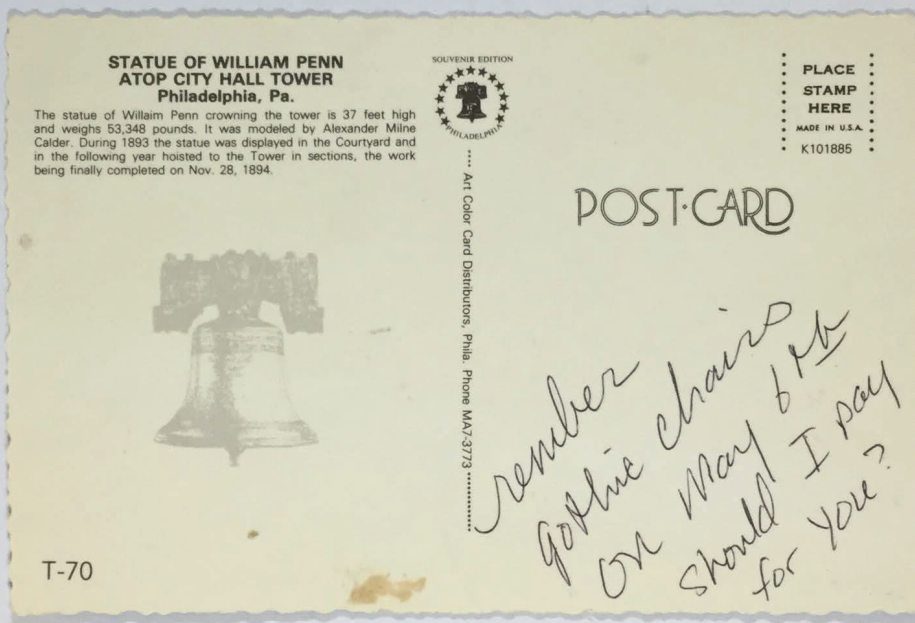 STATUE OF WILLIAM PENN
ATOP CITY HALL TOWER
Philadelphia, Pa.
The statue of Willaim Penn crowning the tower is 37 feet high
and weighs 53,348 pounds. It was modeled by Alexander Milne
Calder. During 1893 the statue was displayed in the Courtyard and
in the following year hoisted to the Tower in sections, the work
being finally completed on Nov. 28, 1894.
T-70
SOUVENIR EDITION
PHILADELPHIA
Art Color Card Distributors, Phila. Phone MA7-3773
PLACE
STAMP
HERE
MADE IN U.S.A.
K101885
POST·CARD
rember
gothic chairs
on May 6th
should I pay
for you?